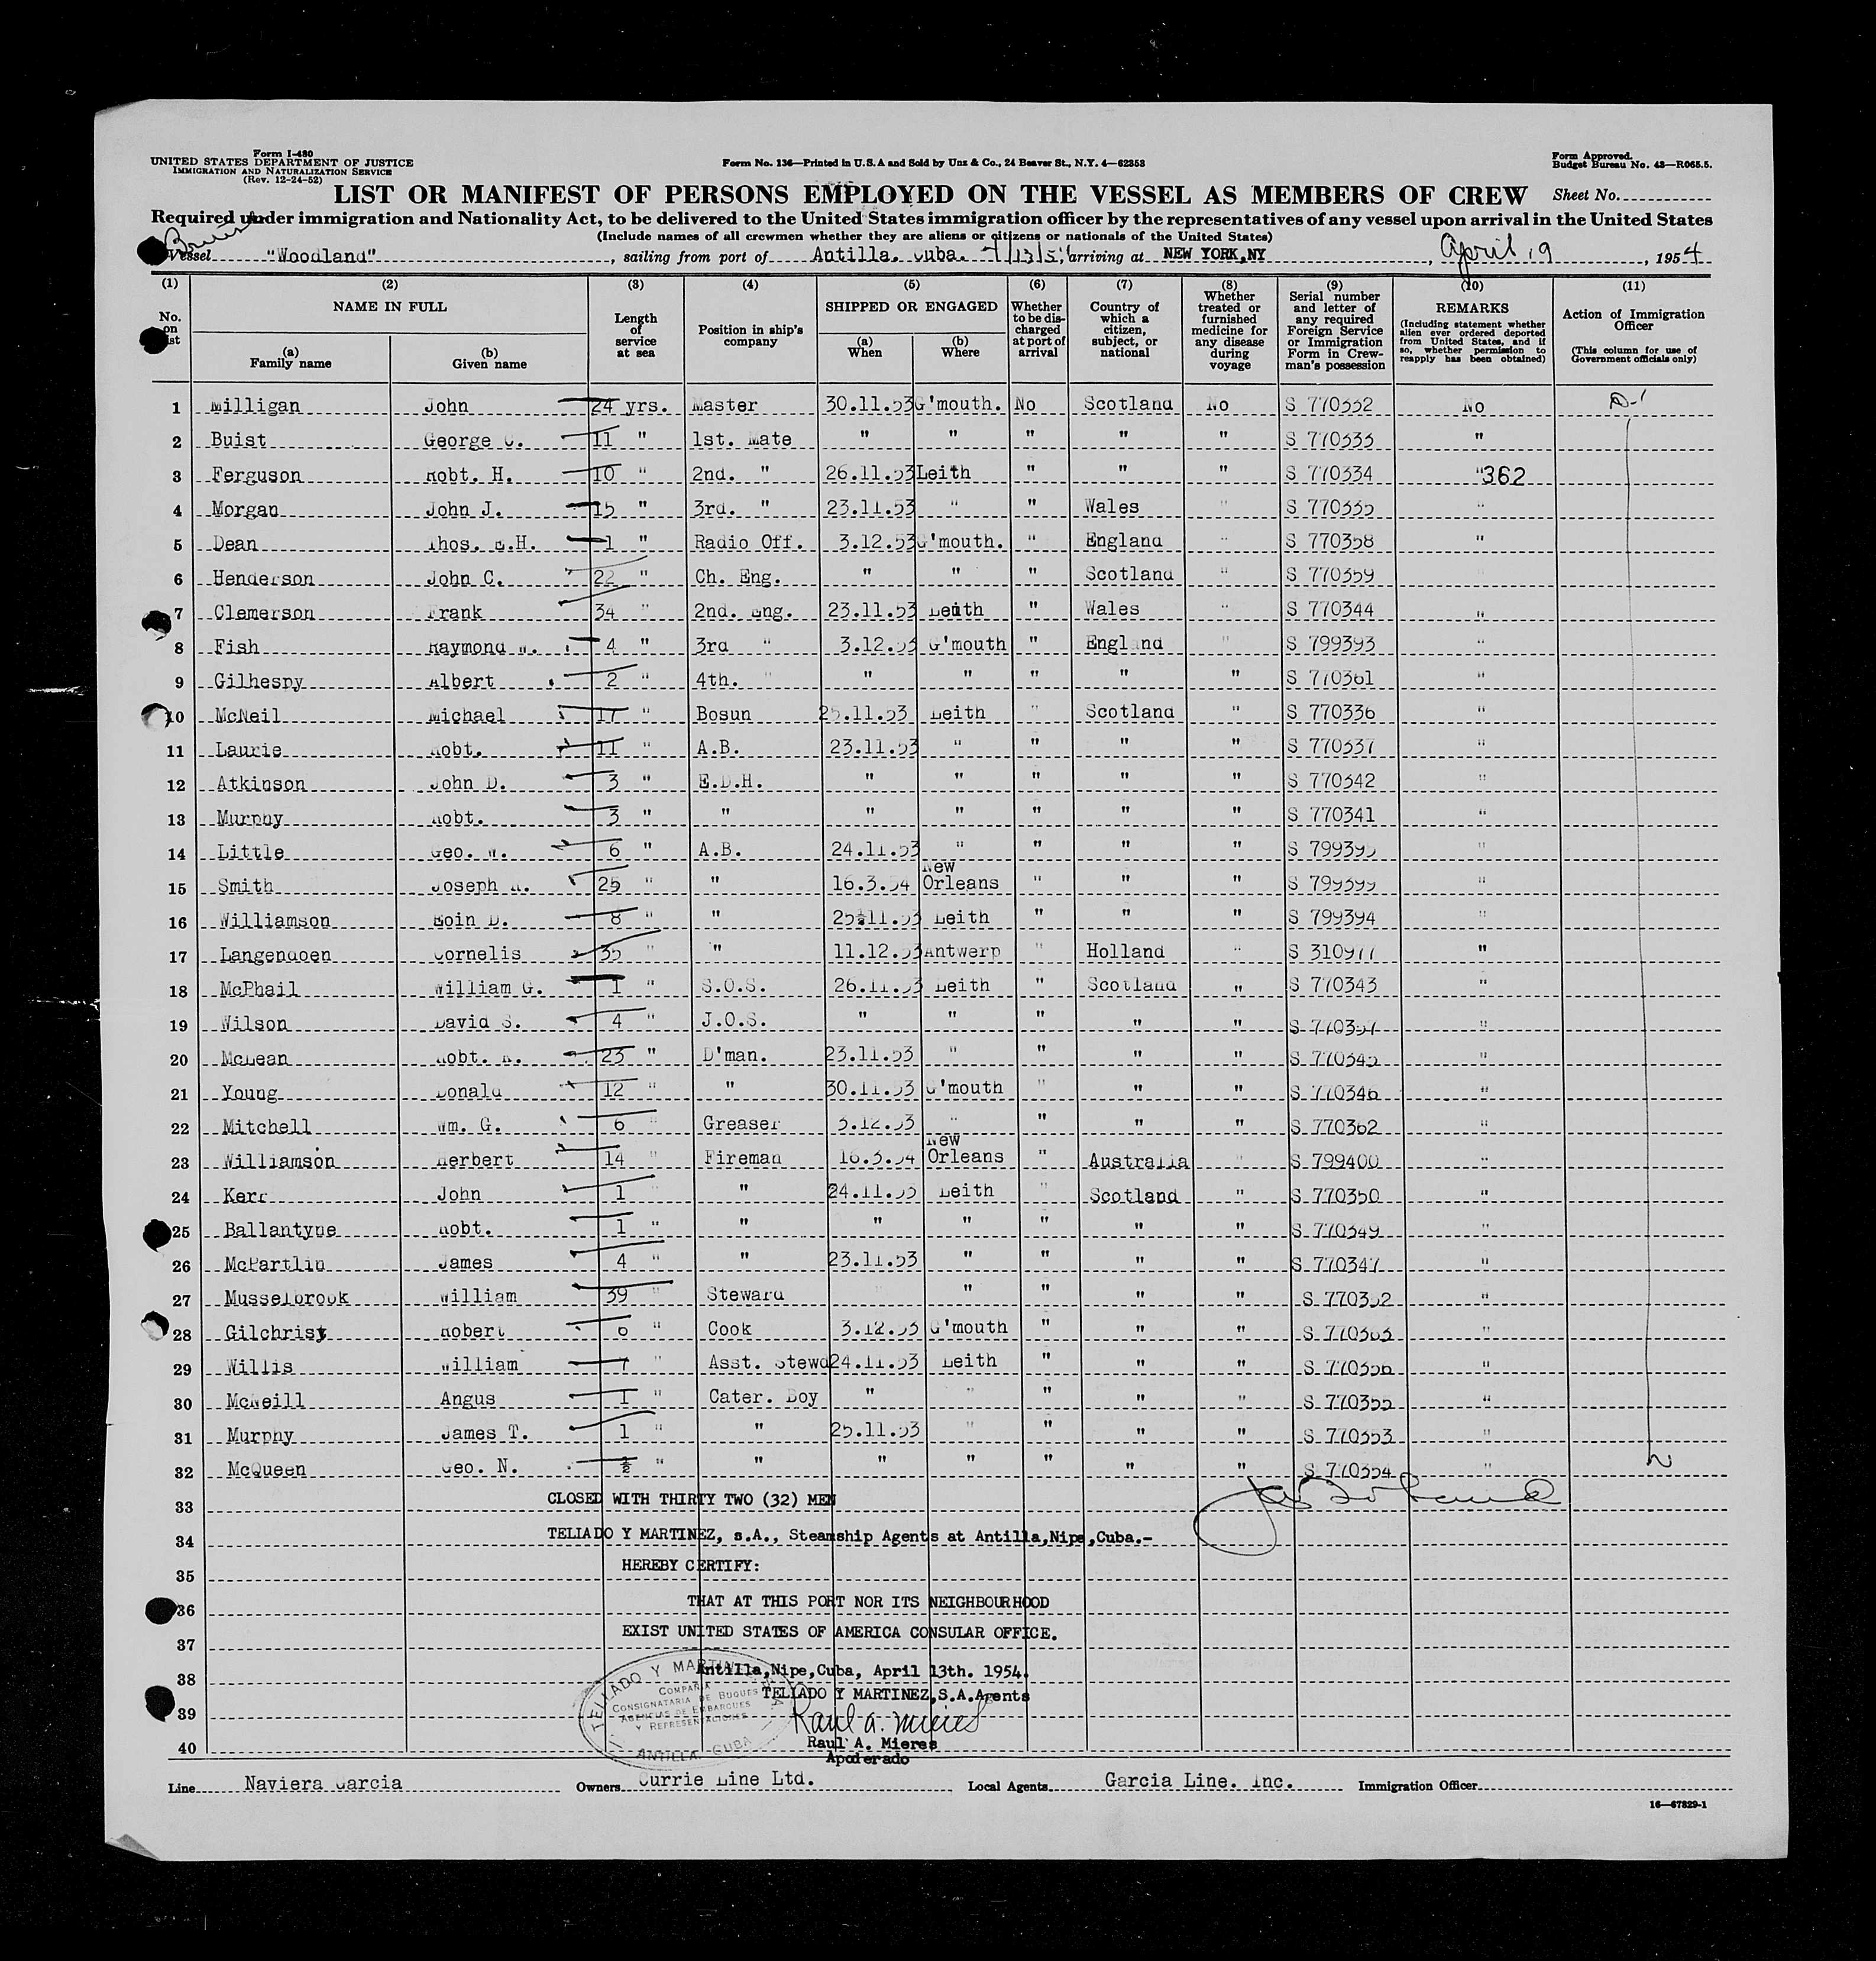 Form I-480
UNITED STATES DEPARTMENT OF JUSTICE
IMMIGRATION AND NATURALIZATION SERVICE
(Rev. 12-24-52)
Form No. 136—Printed in U.S.A and Sold by Unz & Co., 24 Beaver St., N.Y. 4—62353
Form Approved.
Budget Bureau No. 43—R065.5.
LIST OR MANIFEST OF PERSONS EMPLOYED ON THE VESSEL AS MEMBERS OF CREW
Sheet No.
Required under immigration and Nationality Act, to be delivered to the United States immigration officer by the representatives of any vessel upon arrival in the United States
(Include names of all crewmen whether they are aliens or citizens or nationals of the United States)
British
Vessel "Woodland", sailing from port of Antilla. Cuba. 4/13/54 arriving at NEW YORK,NY, April 19, 1954
(1) (2) (3) (4) (5) (6) (7) (8) (9) (10) (11)
No. on list
NAME IN FULL
(a) Family name
(b) Given name
Length of service at sea
Position in ship's company
SHIPPED OR ENGAGED
(a) When
(b) Where
Whether to be discharged at port of arrival
Country of which a citizen, subject, or national
Whether treated or furnished medicine for any disease during voyage
Serial number and letter of any required Foreign Service or Immigration Form in Crewman's possession
REMARKS
(Including statement whether alien ever ordered deported from United States, and if so, whether permission to reapply has been obtained)
Action of Immigration Officer
(This column for use of Government officials only)
1 Milligan John 24 yrs. Master 30.11.53 G'mouth. No Scotland No S 770332 No D-1
2 Buist George C. 11 " 1st. Mate " " " " " S 770333 "
3 Ferguson Robt. H. 10 " 2nd. " 26.11.53 Leith " " " S 770334 " 362
4 Morgan John J. 15 " 3rd. " 23.11.53 " " Wales " S 770335 "
5 Dean Thos. E.H. 1 " Radio Off. 3.12.53 G'mouth. " England " S 770358 "
6 Henderson John C. 22 " Ch. Eng. " " " Scotland " S 770359
7 Clemerson Frank 34 " 2nd. Eng. 23.11.53 Leith " Wales " S 770344 "
8 Fish Raymond W. 4 " 3rd " 3.12.53 G'mouth " England " S 799393 "
9 Gilhespy Albert 2 " 4th. " " " " " " S 770361 "
10 McNeil Michael 17 " Bosun 25.11.53 Leith " Scotland " S 770336 "
11 Laurie Robt. 11 " A.B. 23.11.53 " " " " S 770337 "
12 Atkinson John D. 3 " E.D.H. " " " " " S 770342 "
13 Murphy Robt. 3 " " " " " " " S 770341 "
14 Little Geo. W. 6 " A.B. 24.11.53 " " " " S 799395 "
15 Smith Joseph 25 " " 16.3.54 New Orleans " " " S 799399 "
16 Williamson Eoin D. 8 " " 25.11.53 Leith " " " S 799394 "
17 Langendoen Cornelis 35 " " 11.12.53 Antwerp " Holland " S 310977 "
18 McPhail William G. 1 " S.O.S. 26.11.53 Leith " Scotland " S 770343 "
19 Wilson David S. 4 " J.O.S. " " " " " S 770357 "
20 McLean Robt. 23 " D'man. 23.11.53 " " " " S 770345 "
21 Young Donald 12 " " 30.11.53 G'mouth " " " S 770346 "
22 Mitchell Wm. G. 6 " Greaser 3.12.53 " " " " S 770362 "
23 Williamson Herbert 14 " Fireman 16.3.54 New Orleans " Australia " S 799400 "
24 Kerr John 1 " " 24.11.53 Leith " Scotland " S 770350 "
25 Ballantyne Robt. 1 " " " " " " " S 770349 "
26 McPartlin James 4 " " 23.11.53 " " " " S 770347 "
27 Musselbrook William 39 " Steward " " " " " S 770352 "
28 Gilchrist Robert 6 " Cook 3.12.53 G'mouth " " " S 770363 "
29 Willis William 7 " Asst. Stewd 24.11.53 Leith " " " S 770356 "
30 McNeill Angus 1 " Cater. Boy " " " " " S 770355 "
31 Murphy James T. 1 " " 25.11.53 " " " " S 770353 "
32 McQueen Geo. N. ½ " " " " " " " S 770354 "
33 CLOSED WITH THIRTY TWO (32) MEN
34 TELIADO Y MARTINEZ, s.A., Steamship Agents at Antilla,Nipe,Cuba.-
35 HEREBY CERTIFY:
36 THAT AT THIS PORT NOR ITS NEIGHBOURHOOD
37 EXIST UNITED STATES OF AMERICA CONSULAR OFFICE.
38 Antilla,Nipe,Cuba, April 13th. 1954.
TELLADO Y MARTINEZ,S.A.Agents
39 Raul A. Mieres
40 Raul A. Mieres
Apoderado
TELLADO Y MARTINEZ
COMPAÑIA
CONSIGNATARIA DE BUQUES
AGENCIAS DE EMBARQUES
Y REPRESENTACIONES
ANTILLA, CUBA
Line Naviera Garcia Owners Currie Line Ltd. Local Agents Garcia Line. Inc. Immigration Officer
16—67829-1